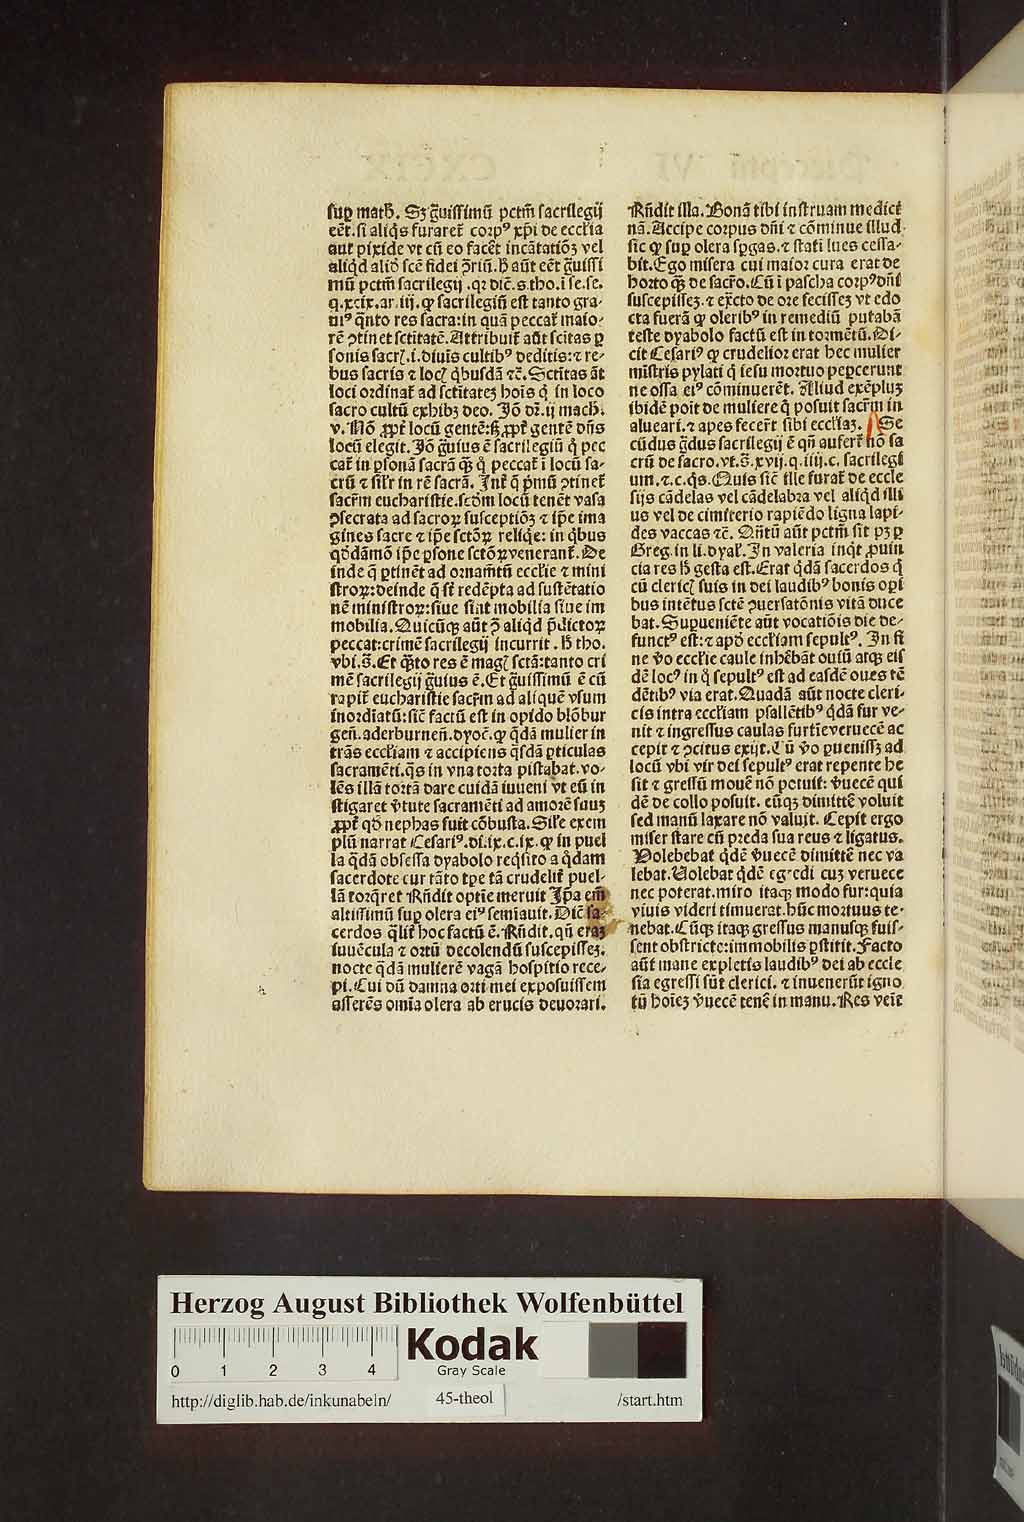 sup̲ math̅. Sꝫ g̅uissimũ pctm̅ sacrilegij
eẽt. si aliq̇s furaret᷑ corpꝰ xp̅i de eccl̅ia
aut pixide vt cũ eo facẽt incãtatiõꝫ vel
aliq̇d aliđ scẽ fidei ꝯriũ. H̅ aũt eẽt g̅uissi
mũ pctm̅ sacrilegij .qꝛ diẽ. s. tho. ĩ se. se.
q. xcix. ar. iij. ꝙ sacrilegiũ est tanto gra⸗
uiꝰ q̃nto res sacra: in quã peccat᷑ maio⸗
rẽ ꝯtinet sctitatẽ. Attribuit᷑ aũt scitas p̲
sonis sacrꝭ .i. diuĩs cultibꝰ deditis: ⁊ re⸗
bus sacris ⁊ locꝭ q̇busdã ⁊c̃. Sctĩtas ãt
loci ordinat᷑ ad sctĩtateꝫ hoĩs q̇ in loco
sacro cultũ exhibꝫ deo. Jõ dr̃. ij mach̅.
v. Nõ ꝓpt᷑ locũ gentẽ: sꝫ ꝓpt᷑ gentẽ dñs
locũ elegit. Jõ g̅uius ẽ sacrilegiũ q̇ pec
cat᷑ in p̲sonã sacrã q̃ꝫ q̇ peccat᷑ ĩ locũ sa⸗
crũ ⁊ sil̅r in rẽ sacrã. Jnt᷑ q̃ p̃mũ ꝯtinet᷑
sacrm̅ eucharistie. scđm locũ tenẽt vasa
ꝯsecrata ad sacroꝝ susceptiõꝫ ⁊ ip̅e ima
gines sacre ⁊ ip̅e sctõꝝ reliq̇e: in q̇bus
qđdãmõ ip̅e p̲sone sctõꝝ venerant᷑. De
inde q̃ p̲tinẽt ad ornam̃tũ eccl̅ie ⁊ mini
stroꝝ: deinde q̃ st̃ redẽpta ad sustẽtatio
nẽ ministroꝝ: siue sint mobilia siue im
mobilia. Quicũqꝫ aũt ꝯ̃ aliq̇d p̃dictoꝝ
peccat: crimẽ sacrilegij incurrit . H̅ tho.
vbi. s̃. Et q̃to res ẽ magꝭ sctã: tanto cri
mẽ sacrilegij g̅uius ẽ. Et g̅uissimũ ẽ cũ
rapit᷑ eucharistie sacr̃m ad aliquẽ vsum
inordiatũ: sic̃ factũ est in opido blõbur
geñ. aderburneñ. dyoc̃. ꝙ q̇dã mulier in
trãs eccl̅iam ⁊ accipiens q̃sdã p̲ticulas
sacramẽti. q̃s in vna torta pistabat. vo⸗
lẽs illã tortã dare cuidã iuueni vt eũ in
stigaret v̾tute sacramẽti ad amorẽ suuꝫ
ꝓpt᷑ qđ nephas fuit cõbusta. Sil̅e exem
plũ narrat Cesariꝰ. di. ix. c. ix. ꝙ in puel
la q̃dã obsessa dyabolo req̇sito a q̇dam
sacerdote cur tãto tp̅e tã crudelit᷑ puel⸗
lã torq̃ret Rñdit optĩe meruit Jp̃a em̃
altissimũ sup̲ olera eiꝰ semĩauit. Dic̃ sa⸗
cerdos q̃lit᷑ hoc factũ ẽ. Rñdit. qñ eraꝫ
iuuẽcula ⁊ ortũ decolendũ suscepisseꝫ.
nocte q̃dã mulierẽ vagã hospitio rece⸗
pi. Cui dũ damna orti mei exposuissem
asserẽs om̃ia olera ab erucis deuorari.
Rñdit illa. Bonã tibi instruam medici
nã. Accipe corpus dñi ⁊ cõminue illud
sic q̇ sup̲ olera sp̲gas. ⁊ stati lues cessa⸗
bit. Ego misera cui maior cura erat de
horto q̃ꝫ de sacr̃o. Cũ ĩ pascha corpꝰ dñi
suscepisseꝫ. ⁊ ex̾cto de ore fecisseꝫ vt edo
cta fuerã ꝙ oleribꝰ in remediũ putabã
teste dyabolo factũ est in tormẽtũ. Di⸗
cit Cesariꝰ ꝙ crudelior erat hec mulier
mĩstris pylati q̇ iesu mortuo pep̲cerunt
ne ossa eiꝰ cõminuerẽt. Aliud exẽpluꝫ
ibidẽ poĩt de muliere q̃ posuit sacr̃m in
alueari. ⁊ apes fecer̃t sibi eccl̅iaꝫ. Se
cũdus g̃dus sacrilegij ẽ qñ aufert᷑ nõ sa
crũ de sacro. vt. s̃. xvij. q. iiij. c. sacrilegi
um. ⁊. c. q̃s. Quis sic̃ ille furat᷑ de eccle
sijs cãdelas vel cãdelabra vel aliq̇d illi
us vel de cimiterio rapiẽdo ligna lapi⸗
des vaccas ⁊c̃. Qñtũ aũt pctm̅ sit pꝫ p̲
Greg. in li. dyal᷑. Jn valeria inq̇t ꝓuin
cia res h̅ gesta est. Erat q̇dã sacerdos q̇
cũ clericꝭ suis in dei laudibꝰ bonis op̲i
bus intẽtus sctẽ ꝯuersatõnis vitã duce
bat. Sup̲ueniẽte aũt vocatiõis die de⸗
functꝰ est: ⁊ apđ eccl̅iam sepultꝰ. Jn fi
ne v̾o eccl̅ie caule inhẽbãt ouiũ atqꝫ eis
dẽ locꝰ in q̇ sepultꝰ est ad easdẽ oues tẽ
dẽtibꝰ via erat. Quadã aũt nocte cleri⸗
cis intra eccl̅iam psallẽtibꝰ q̇dã fur ve⸗
nit ⁊ ingressus caulas furtĩe veruecẽ ac
cepit ⁊ ꝯcitus exijt. Cũ v̾o p̲uenissꝫ ad
locũ vbi vir dei sepultꝰ erat repente he
sit ⁊ gressũ mouẽ nõ potuit: v̾uecẽ qui
dẽ de collo posuit. eũqꝫ dimittẽ voluit
sed manũ laxare nõ valuit. Cepit ergo
miser stare cũ preda sua reus ⁊ ligatus.
Volebebat q̇dẽ v̾uecẽ dimittẽ nec va
lebat. Volebat q̇dẽ egredi cuꝫ veruece
nec poterat. miro itaqꝫ modo fur: quia
viuis videri timuerat. hũc mortuus te⸗
nebat. Cũqꝫ itaqꝫ gressus manusqꝫ fuis⸗
sent obstricte: immobilis p̲stitit. Facto
aũt mane expletis laudibꝰ dei ab eccle
sia egressi sũt clerici. ⁊ inuenerũt igno
tũ hoĩeꝫ v̾uecẽ tenẽ in manu. Res veĩt
Herzog August Bibliothek Wolfenbüttel
0 1 2 3 4
Kodak
Gray Scale
http://diglib.hab.de/inkunabeln/ 45-theol /start.htm